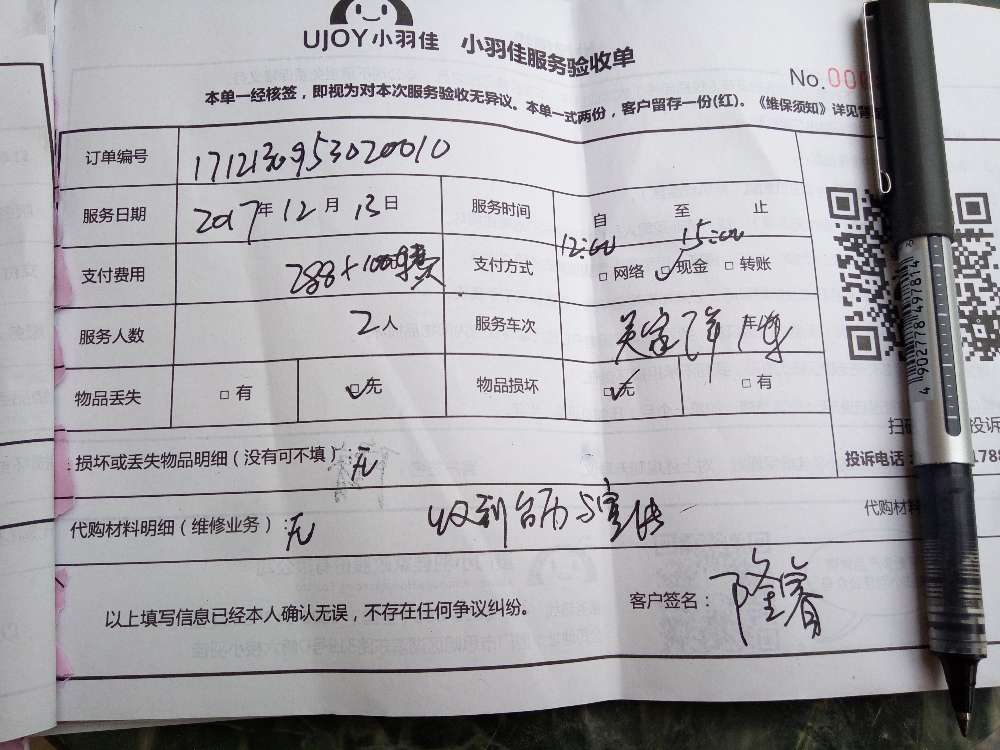 UJOY小羽佳 小羽佳服务验收单
No.00
本单一经核签，即视为对本次服务验收无异议。本单一式两份，客户留存一份(红)。《维保须知》详见背
订单编号 1712130953020010
服务日期 2017年12月13日 服务时间 自 至 止
12:00 15:00
支付费用 288+100 支付方式 □网络 ☑现金 □转账
服务人数 2人 服务车次
物品丢失 □有 ☑无 物品损坏 ☑无 □有
损坏或丢失物品明细（没有可不填）：无
投诉
投诉电话： 1788
代购材料明细（维修业务）：无 收到
代购材料
以上填写信息已经本人确认无误，不存在任何争议纠纷。 客户签名：隆睿
4 902778 497814